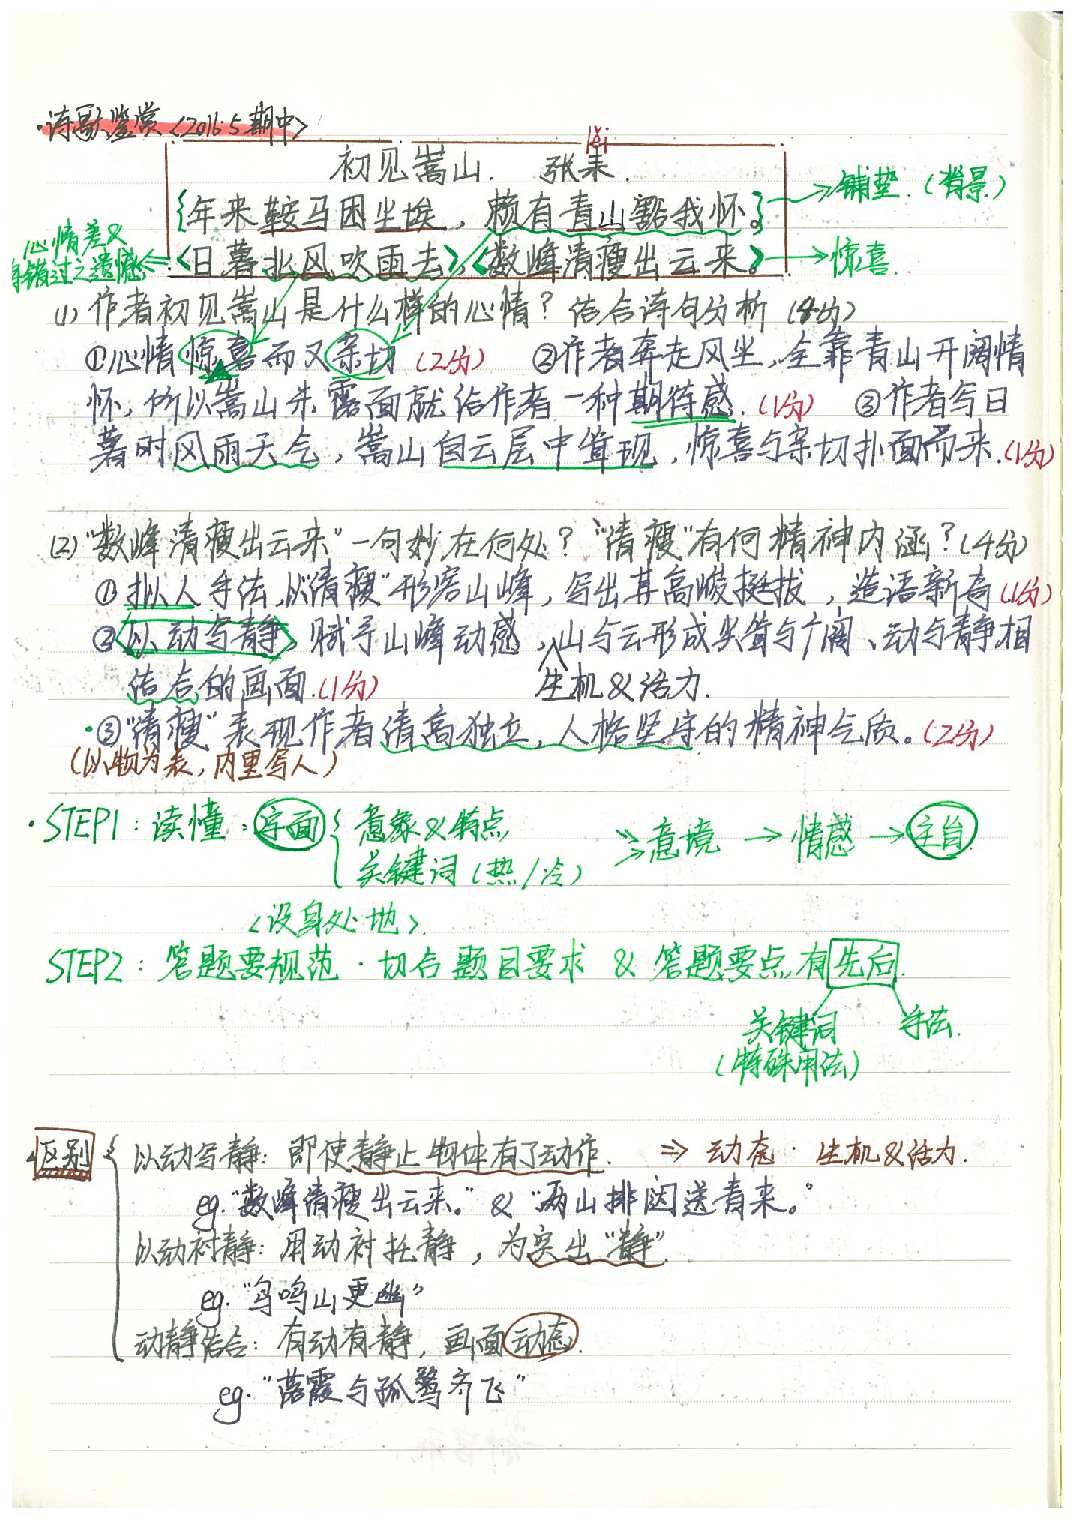 ·诗歌鉴赏〈2016.5期中〉
初见嵩山. 张耒.
lěi
{年来鞍马困尘埃，赖有青山豁我怀。}
→铺垫.(背景)
〈日暮北风吹雨去〉,〈数峰清瘦出云来。〉
→惊喜.
心情差&
错过之遗憾
(1)作者初见嵩山是什么样的心情？结合诗句分析(4分)
①心情惊喜而又亲切(2分) ②作者奔走风尘,全靠青山开阔情
怀,所以嵩山未露面就给作者一种期待感.(1分) ③作者写日
暮时风雨天气，嵩山自云层中耸现,惊喜与亲切扑面而来.(1分)
(2)"数峰清瘦出云来"一句妙在何处？"清瘦"有何精神内涵？(4分)
①拟人手法,以"清瘦"形容山峰，写出其高峻挺拔，造语新奇(1分)
②以动写静,赋予山峰动感,山与云形成尖耸与广阔、动与静相
结合的画面.(1分) 生机&活力.
·③"清瘦"表现作者清高独立,人格坚守的精神气质。(2分)
(以物为表,内里写人)
·STEP1:读懂:字面{意象&特点 ⇒意境→情感→主旨
关键词(热/冷)
〈设身处地〉
STEP2:答题要规范·切合题目要求 & 答题要点有先后.
关键词 手法.
(特殊用法)
·区别{以动写静:即使静止物体有了动作. ⇒动态·生机&活力.
eg."数峰清瘦出云来。"&"两山排闼送青来。"
以动衬静:用动衬托静，为突出"静"
eg."鸟鸣山更幽"
动静结合:有动有静,画面动态.
eg."落霞与孤鹜齐飞"